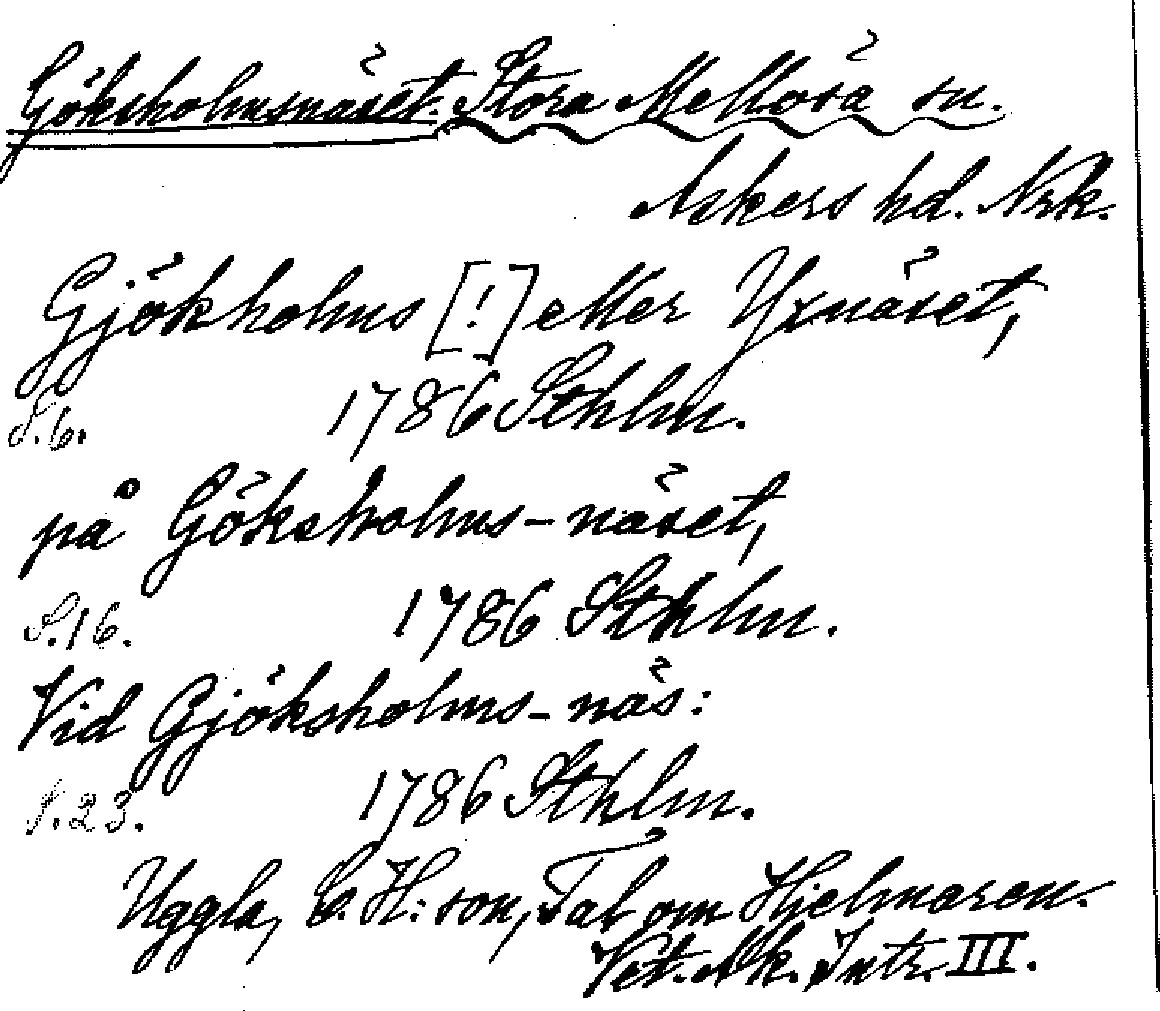 Göksholmsnäset. Stora Mellösa sn.
Askers hd. Nrk.
Gjökholms [!] eller Yxnäset,
S.6. 1786 Sthlm.
på Göksholms-näset,
S.16. 1786 Sthlm.
Vid Gjöksholms-näs:
S.23. 1786 Sthlm.
Uggla, C. H:son, Tal om Hjelmaren.
Vet. Ak. Intr. III.